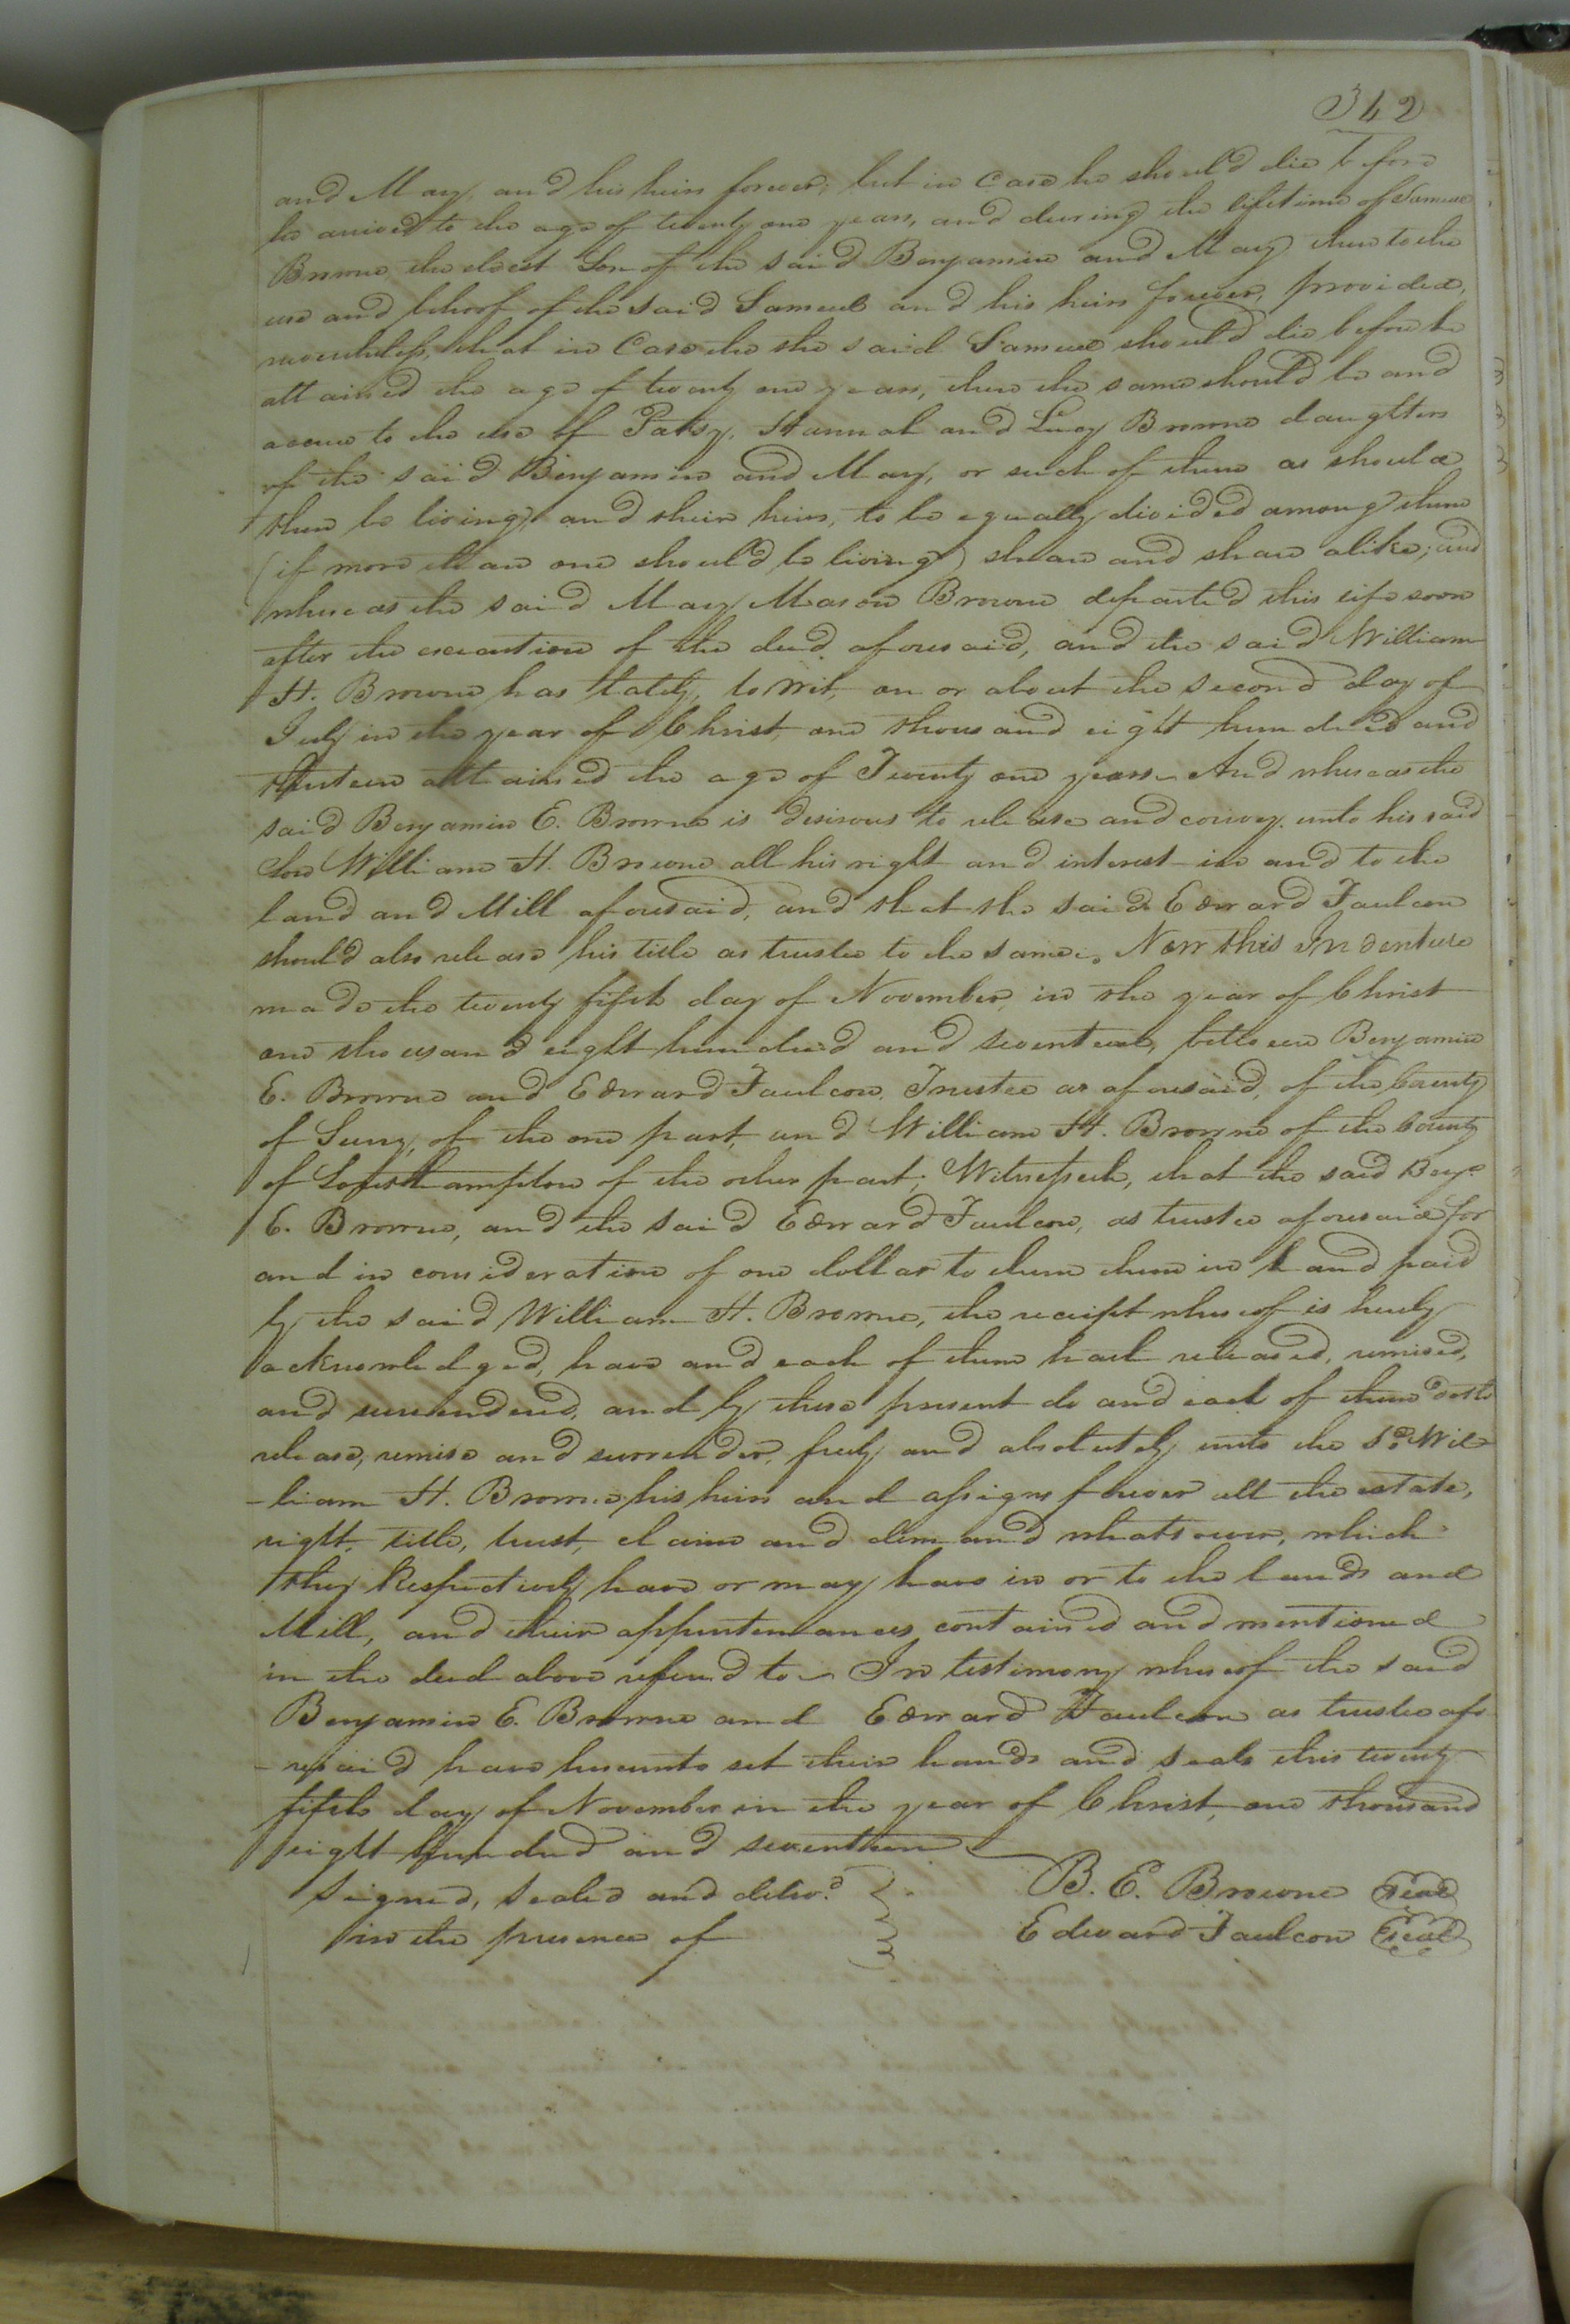 342
and May, and his heirs forever; but in Case he should die before
he arrived to the age of twenty one years, and during the lifetime of Samuel
Browne the eldest Son of the said Benjamin and May then to the
use and behoof of the said Samuel and his heirs forever, provided,
nevertheless, that in Case the the said Samuel should die before he
attained the age of twenty one years, then the same should be and
accrue to the use of Patsy, Hannah and Lucy Browne daughters
of the said Benjamin and May, or such of them as should
then be living, and their heirs, to be equally divided among them
(if more than one should be living) share and share alike; and
whereas the said May Mason Browne departed this life soon
after the execution of the deed aforesaid, and the said William
H. Browne has lately, to wit, on or about the second day of
July in the year of Christ one thousand eight hundred and
attained the age of Twenty one years – And whereas the
said Benjamin E. Browne is desirous to release and convey unto his said
Son William H. Browne all his right and interest in and to the
land and Mill aforesaid, and that the said Edward Faulcon
should also release his title as trustee to the same. Now this Indenture
made the twenty fifth day of November, in the year of Christ
one thousand eight hundred and seventeen, between Benjamin
E. Browne and Edward Faulcon, Trustee as aforesaid, of the County
of Surry, of the one part, and William H. Browne of the County
of Southampton of the other part; Witnesseth, that the said Benjn
E. Browne, and the said Edward Faulcon, as trustee aforesaid for
and in consideration of one dollar to them them in hand paid
by the said William H. Browne, the receipt whereof is hereby
acknowledged, have and each of them hath released, remised,
and surrendered, and by these present do and each of them doth
release, remise and surrender, freely and absolutely unto the sd. Wil
-liam H. Browne his heirs and assigns forever all the estate,
right, title, trust, claim and demand whatsoever, which
they Respectively have or may have in or to the lands and
Mill, and their appurtenances contained and mentioned
in the deed above referred to – In testimony whereof the said
Benjamin E. Browne and Edward Faulcon as trustee afo
-resaid have hereunto set their hands and seals this twenty
fifth day of November in the year of Christ, one thousand
eight hundred and seventeen
Signed, Sealed and delivd. B. E. Browne seal
in the presence of Edward Faulcon seal